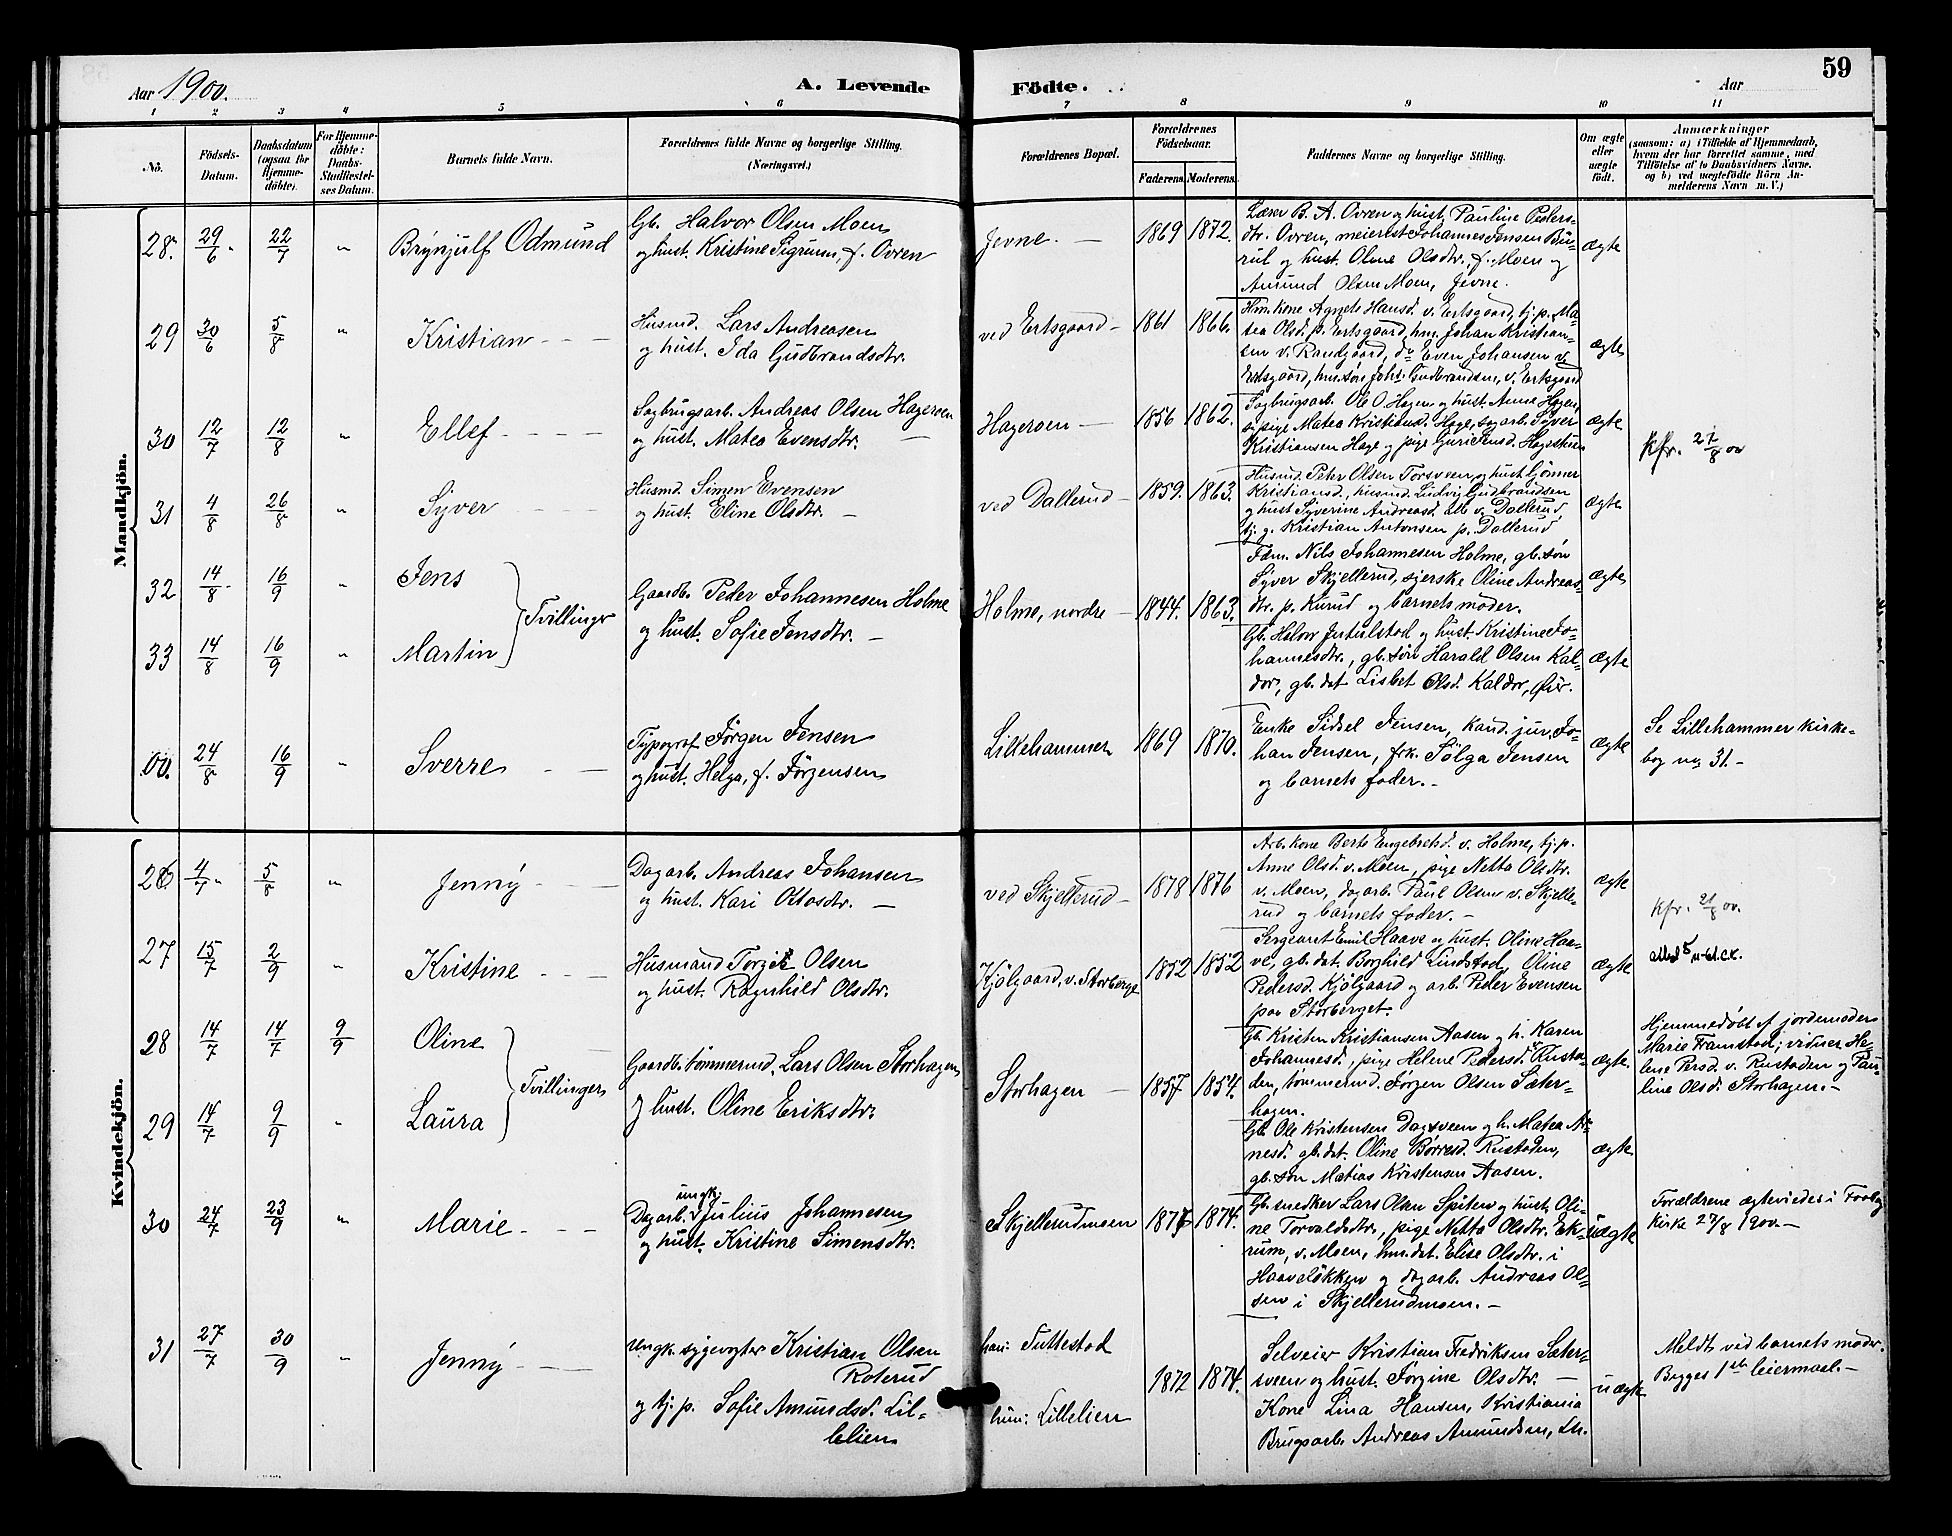 59
Aar 1900.
A. Levende Födte.
Aar
1 2 3 4 5 6 7 8 9 10 11
No.
Födsels-Datum.
Daabsdatum (ogsaa for Hjemme-døbte).
For Hjemme-döbte: Daabs-Stadfæstel-ses Datum.
Barnets fulde Navn.
Forældrenes fulde Navne og borgerlige Stilling.
(Næringsvei.)
Forældrenes Bopæl.
Forældrenes Födselsaar.
Faderens. Moderens.
Faddernes Navne og borgerlige Stilling.
Om ægte eller uægte födt.
Anmærkninger
(saasom: a) i Tilfælde af Hjemmedaab,
hvem der har forrettet samme, med
Tilföielse af to Daabsvidners Navne.
og b) ved uægtefödte Börn An-
melderens Navn m. V.)
Mandkjön.
28. 29/6 22/7 " Brynjulf Odmund
Gb. Halvor Olsen Moen
og hust. Kristine Sigrum, f. Ovren
Jevne. — 1869 1872.
Lærer B. A. Ovren og hust. Pauline Peders-
dtr. Ovren, meierest Johannes Jensen Bu-
rul og hust. Oline Olsdtr., f. Moen og
Amund Olsen Moen, Jevne.
ægte
29 30/6 5/8 " Kristian
Husmd. Lars Andreasen
og hust. Ida Gudbrandsdtr.
ved Ertsgaard — 1861 1866.
Hm. kone Agnete Hansd. v. Ertsgaard, tj. p. Ma-
tea Olsd. p. Ertsgaard, hm. Johan Kristian-
sen v. Randgaard, do Even Johansen v.
Ertsgaard, hm. søn Johs. Gudbrandsen, v. Ertsgaard
ægte
30 12/7 12/8 " Ellef
Sagbrugsarb. Andreas Olsen Hageroen
og hust. Matea Evensdtr.
Hageroen — 1856 1862.
Sagbrugsarb. Ole O. Hagen og hust. Anne Hagen,
pige Matea Kristiansd. Hage, sagarb. Syver
Kristiansen Hage og pige Guri Jensd. Hagestuen
ægte
kfr. 21/8 00
31 4/8 26/8 " Syver
Husmd. Simen Evensen
og hust. Eline Olsdtr. —
ved Dallerud — 1859. 1863.
Husmd. Peter Olsen Torsveen og hust. Gjönner
Kristiansd., husmd. Ludvig Gudbrandsen
og hust. Syverine Andreasd. alle v. Dallerud
tj. g. Kristian Antonsen p. Dallerud
ægte
32 14/8 16/9 " Jens
Tvillinger
Gaardb. Peder Johannesen Holme
og hust. Sofie Jensdtr. —
Holme, nordre — 1844. 1863.
Fdm. Nils Johannesen Holme, gb. søn
Syver Skjellerud, sjerske Oline Andreas-
dtr. p. Kurud og barnets moder.
ægte
33 14/8 16/9 " Martin
Gb. Helvor Jutulstad og hust. Kristine Jo-
hannesdtr., gb. søn Harald Olsen Kal-
dor, gb. dat. Lisbet Olsd. Kaldor, Øier.
ægte
00. 24/8 16/9 " Sverre
Typograf Jørgen Jensen
og hust. Helga, f. Jörgensen
Lillehammer 1869 1870.
Enke Sidsel Jensen, kand. jur. Jo-
han Jensen, frk. Sölga Jensen
og barnets fader. —
ægte
Se Lillehammer kirke-
bog no 31. —
Kvindekjön.
26 4/7 5/8 " Jenny
Dagarb. Andreas Johansen
og hust. Kari Ottosdtr. —
ved Skjellerud — 1878 1876
Arb. kone Berte Engebretsd. v. Holme, tj. p.
Anne Olsd. v. Moen, pige Netta Olsdtr.
v. Moen, dagarb. Paul Olsen v. Skjelle-
rud og barnets fader. —
ægte
kfr. 21/8 00.
27 15/7 2/9 " Kristine
Husmand Torgir Olsen
og hust. Ragnhild Olsdtr.
Kjölgaard, v. Storberget 1852 1852
Sergeant Emil Haave og hust. Oline Haa-
ve, gb. dat. Borghild Lindstad, Oline
Pedersd. Kjölgaard og arb. Peder Evensen
paa Storberget.
ægte
28 14/7 14/7 9/9 Oline
Tvillinger
Gaardb. tømmermd. Lars Olsen Storhagen
og hust. Oline Eriksdtr.
Storhagen — 1857 1854.
Gb. Kristen Kristiansen Aasen og h. Karen
Johannesd., pige Helene Pedersd. Rusta-
den, tømmermd. Jörgen Olsen Sæter-
hagen.
ægte.
Hjemmedøbt af jordemoder
Marie Framstad; vidner He-
lene Persd. v. Rustaden og Pau-
line Olsd. Storhagen. —
29 14/7 9/9 " Laura
Gb. Ole Kristensen Dagsveen og h. Matea Ar-
nesd. gb. dat. Oline Børresd. Rustaden,
gb. søn Matias Kristensen Aasen.
ægte
30 24/7 23/9 " Marie
Dagarb. ungk. Julius Johannesen
og hust. Kristine Simensdtr.
Skjellerudmoen 1877 1874.
Gb. snedker Lars Olsen Spiten og hust. Oli-
ne Torvaldsdtr., pige Netta Olsdtr. Ek-
rum, v. Moen, hm. dat. Elise Olsdtr. i
Haavelökken og dagarb. Andreas Ol-
sen i Skjellerudmoen. —
uægte
Forældrene ægteviedes i Faaberg
kirke 27/8 1900. —
31 27/7 30/9 " Jenny
Ungk. sygevogter Kristian Olsen
Roterud
og tj. p. Sofie Amundsd. Lil-
lelien
han: Tuttestad
hun: Lillelien
1872 1874.
Selveier Kristian Fredriksen Sæter-
sveen og hust. Jörgine Olsdtr. —
Kone Lina Hansen, Kristiania
Brugsarb. Andreas Amundsen, Lh.
uægte
Meldt ved barnets moder.
Begges 1ste leiermaal. —